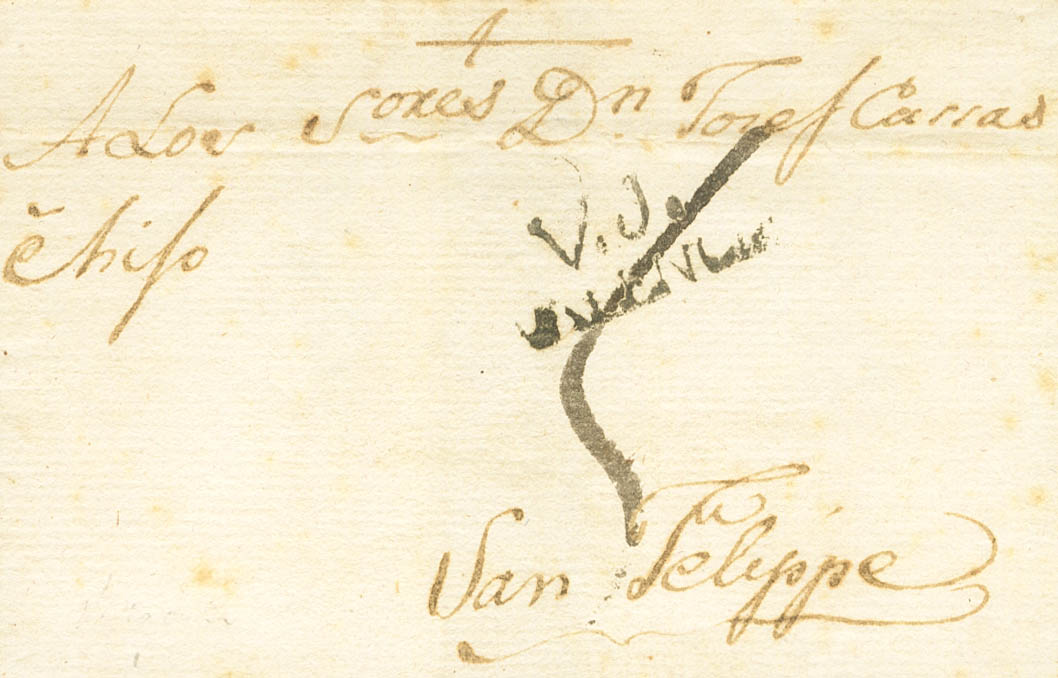 A Los Sores Dn Josef Carras
é hijo
V.J.
San Felippe